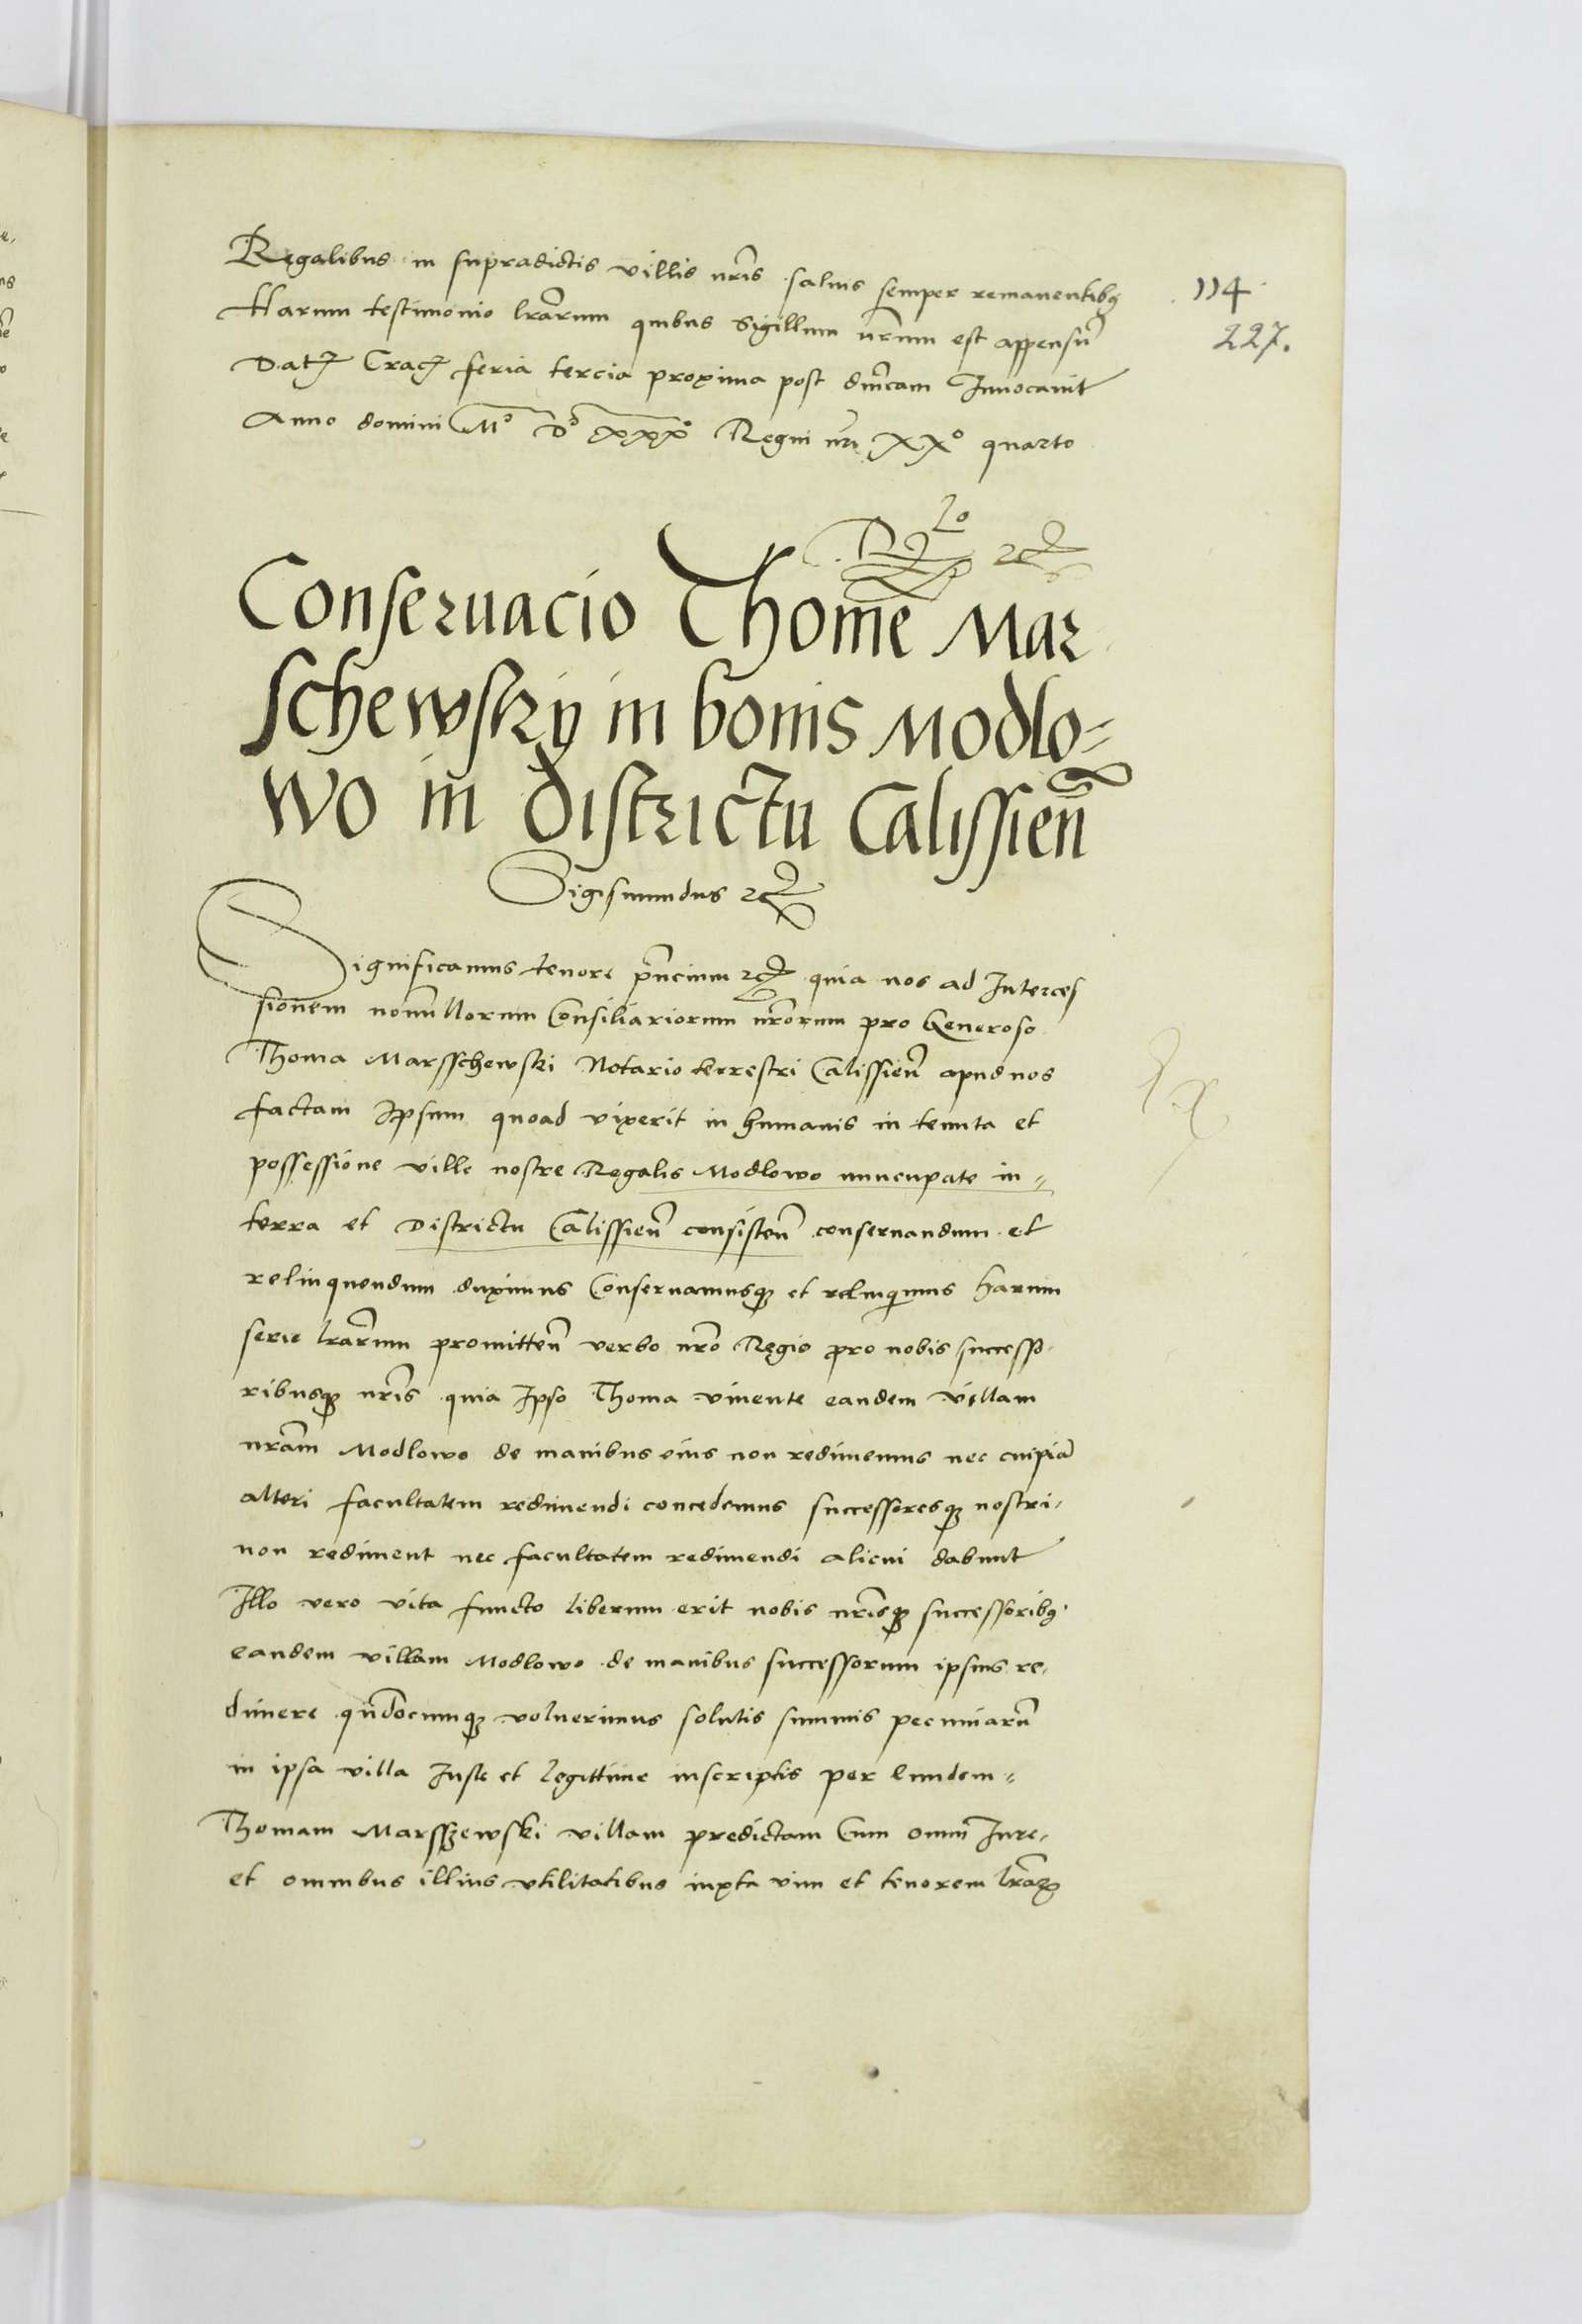 Regalibus in supradictis villis nr̃is saluis semper remanentibꝯ
114
Harum testimonio lr̃arum quibus Sigillum nr̃um est appensũ
227.
Datꝭ Cracꝭ feria tercia proxima post dñicam Inuocauit
Anno domini Mº Dº xxxº Regni nr̃i XXº quarto
Conseruacio Thome Mar
schewsky in bonis Modlo=
wo in districtu Calissieñ
Sigismundus ꝛcꝭ
Significamus tenore pñcium ꝛcꝭ quia nos ad Interces
sionem nonnullorum Consiliariorum nr̃orum pro Generoso
Thoma Marsschewski Notario terrestri Calissieñ apud nos
factam Ipsum quoad vixerit in humanis in tenuta et
possessione ville nostre Regalis Modlowo nuncupate in=
terra et Districtu Calissieñ consisteñ conseruandum et
relinquendum duximus Conseruamusqꝫ et relinquimus harum
serie lr̃arum promitteñ verbo nr̃o Regio pro nobis successo-
ribusqꝫ nr̃is quia Ipso Thoma viuente eandem villam
nr̃am Modlowo de manibus eius non redimemus nec cuipiã
alteri facultatem redimendi concedemus successoresqꝫ nostri
non rediment nec facultatem redimendi alicui dabunt
Illo vero vita functo liberum erit nobis nr̃isqꝫ successoribꝯ
eandem villam Modlowo de manibus successorum ipsius re-
dimere qñdocumqꝫ voluerimus solutis summis pecuniarũ
in ipsa villa Iuste et legittime inscriptis per Eundem=
Thomam Marsszewski villam predictam Cum omni Iure
et omnibus illius vtilitatibus iuxta vim et tenorem lr̃aꝝ